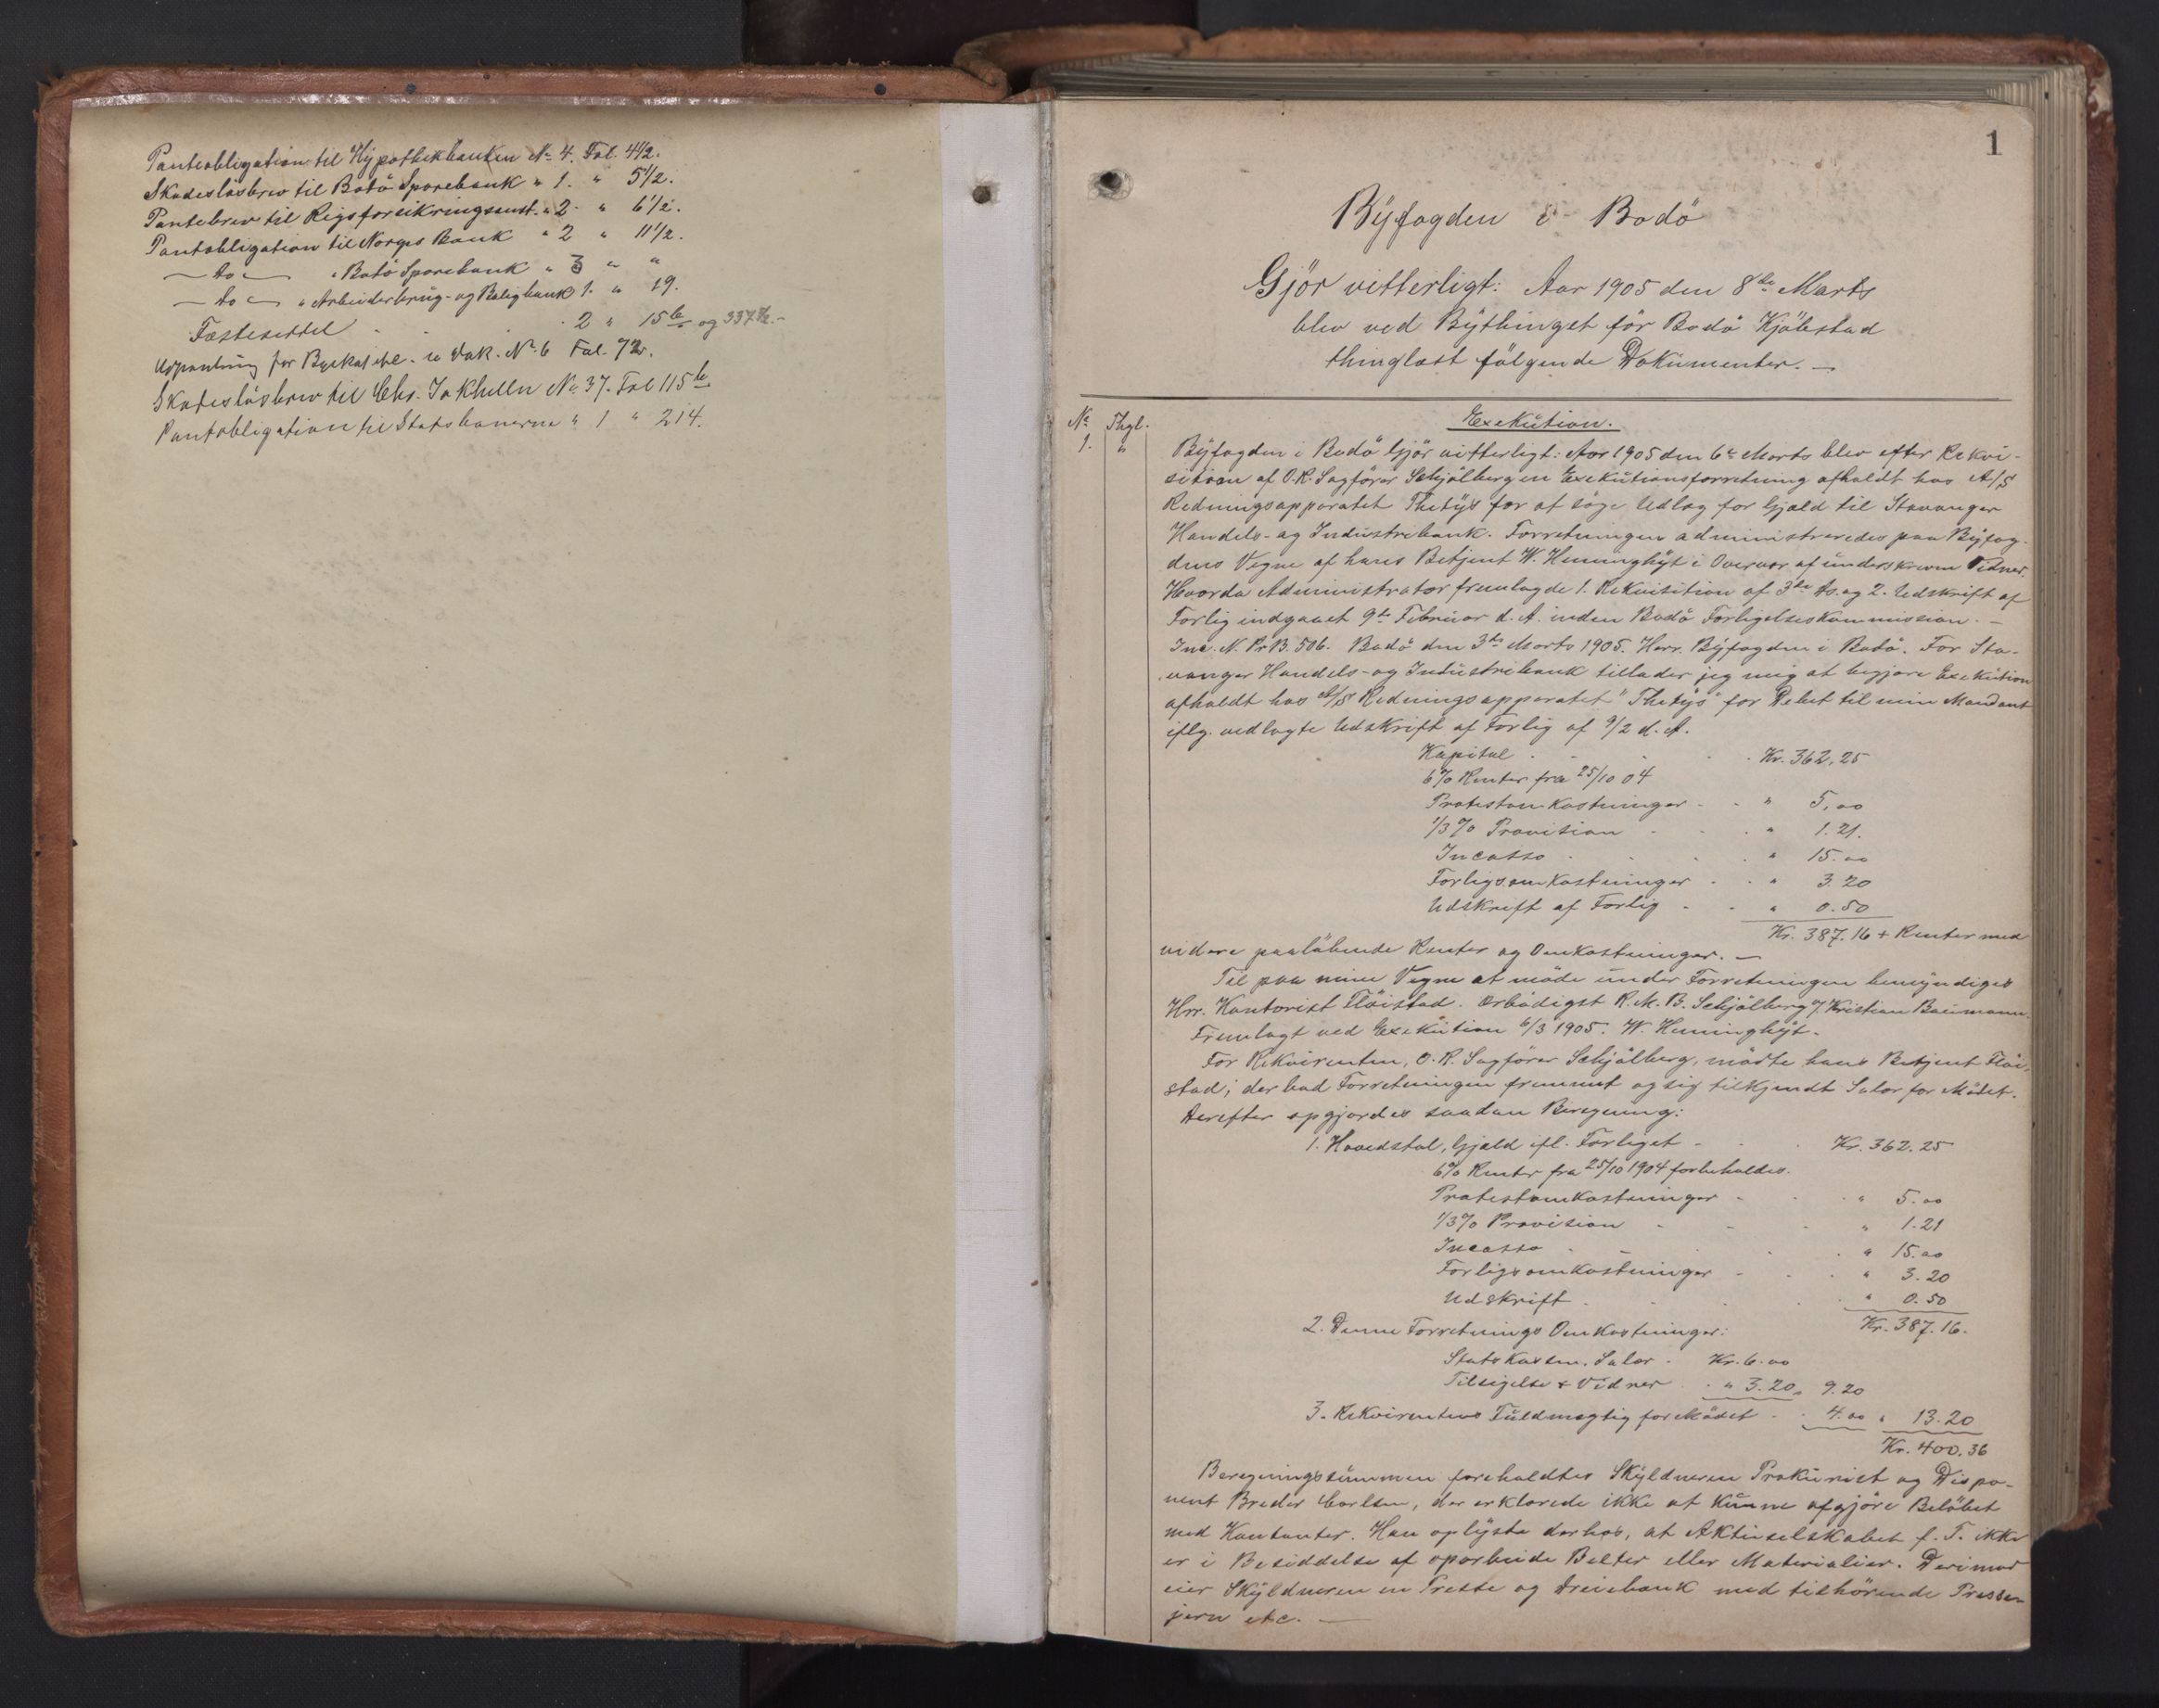 Panteobligation til Hypothekbanken No 4. Fol. 4 1/2.
Skadeslösbrev til Bodö Sparebank " 1. " 5 1/2.
Pantebrev til Rigsforsikringsanst. " 2 " 6 1/2.
Pantobligation til Norges Bank " 2 " 11 1/2.
— do — " Bodö Sparebank " 3 " "
— do — " Arbeiderbrug- og Boligbank 1. " 19.
Fæsteseddel . . . 2 " 15 b og 337 1/2.-
Udpantning for Byskat No. 6 Fol. 72.
Skadeslösbrev til Chr. Jakhelln No. 37. Fol 115 b.
Pantobligation til Statsbanerne " 1 " 214.
1
Byfogden i Bodö
Gjör vitterligt: Aar 1905 den 8de Marts
blev ved Bythinget för Bodö Kjöbstad
thinglæst fölgende Dokumenter. —
No Thgl. Exekution.
1. " Byfogden i Bodö Gjör vitterligt: Aar 1905 den 6te Marts blev efter Rekvi-
sition af O.R. Sagförer Schjölberg en Exekutionsforretning afholdt hos A/S
Redningsapparatet Thetys for at söge Udlæg for Gjæld til Stavanger
Handels- og Industribank. Forretningen administreredes paa Byfog-
dens Vegne af hans Betjent W. Henninghyt i Overvær af underskrevne Vidner.
Hvorda Administrator fremlagde 1. Rekvisition af 3die ds. og 2. Udskrift af
Forlig indgaaet 9de Februar d. A. inden Bodö Forligelseskommission. —
Ine. N. Pr B. 506. Bodö den 3die Marts 1905. Herr. Byfogden i Bodö. For Sta-
vanger Handels- og Industribank tillader jeg mig at begjære Exekution
afholdt hos A/S Redningsapparatet "Thetys" for Debet til min Mandant
iflg. vedlagte Udskrift af Forlig af 9/2 d. A.
Kapital . . . Kr. 362,25
6% Renter fra 25/10 04
Protestomkostninger - - " 5,00
1/3 % Provision . . " 1.21.
Incasso . . . " 15.00
Forligsomkostninger . . " 3.20
Udskrift af Forlig - - " 0.50
Kr. 387.16 + Renter med
videre paalöbende Renter og Omkostninger. —
Til paa mine Vegne at möde under Forretningen bemyndiges
Hrr. Kontorist Flöistad. Ærbödigst R. M. B. Schjölberg / Kristian Baumann.
Fremlagt ved Exekution 6/3 1905. W. Henninghyt.
For Rekvirenten, O. R. Sagförer Schjölberg, mödte hans Betjent Flöi-
stad; der bad Forretningen fremmet og sig tilkjendt Salær for Mödet.
Derefter opgjordes saadan Beregning:
1. Hovedstol, Gjæld ifl. Forliget - . . Kr. 362.25
6% Renter fra 25/10 1904 forbeholdes.
Protestomkostninger - . . " 5.00
1/3 % Provision - - . " 1.21
Incasso . - . . " 15.00
Forligsomkostninger - . . " 3.20
Udskrift . . . . " 0.50
2. Denne Forretnings Omkostninger: Kr. 387.16.
Statskassen. Salær . Kr. 6.00
Tilsigelse & Vidner . " 3.20 " 9.20
3. Rekvirentens Fuldmægtig for Mödet . . 4.00 " 13.20
Kr. 400.36
Beregningssummen foreholdtes Skyldneren Prokurist og Dispo-
nent Breder Carlsen, der erklærede ikke at kunne afgjöre Belöbet
med Kontanter. Han oplyste derhos, at Aktieselskabet f. T. ikke
er i Besiddelse af oparbeide Belter eller Materialier. Derimod
eier Skyldneren en Presse og Dreiebænk med tilhörende Presse-
jern etc. —